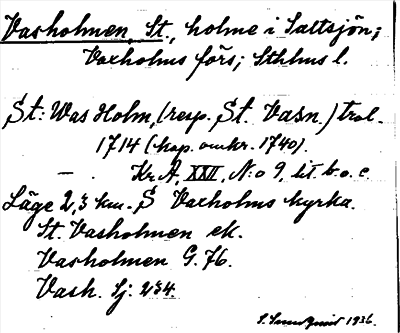 Vasholmen, St., holme i Saltsjön;
Vaxholms förs; Sthlms l.
St: Was Holm, (resp. St. Vasn.) trol.
1714 (kop. omkr. 1740).
— . Kr A, XXII, N:o 9, lit. b. o. c.
Läge 2,3 km. S Vaxholms kyrka.
St. Vasholmen ek.
Vasholmen G. 76.
Vash. Sj. 234.
1936.